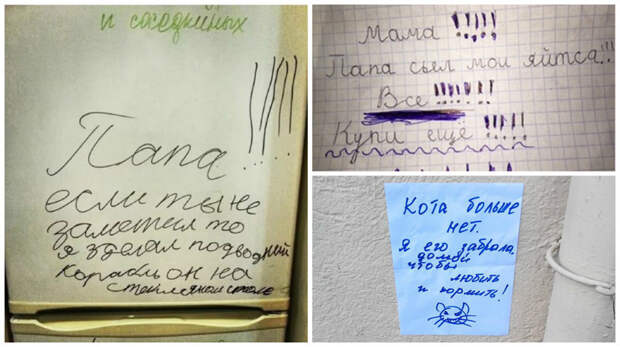 и соседкиных
Папа!!!!!
если ты не
заметил то
я зделал подводний
корабль он на
стеклянной столе
Мама !!!!!
Папа съел мои яйтса!!!
Все !!!!!!!
Купи ещё !!!!!
Кота больше
нет.
Я его забрала
домой
чтобы
любить
и кормить!